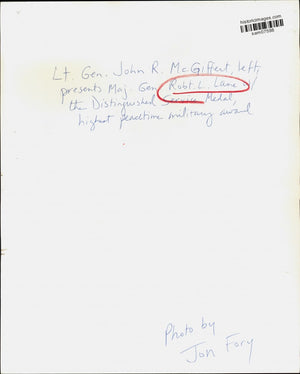 historicimages.com
Lt. Gen. John R. McGiffert, left,
presents Maj. Gen. Robt. L. Lane
the Distinguished Service Medal,
highest peacetime military award
Photo by
Jon Fory